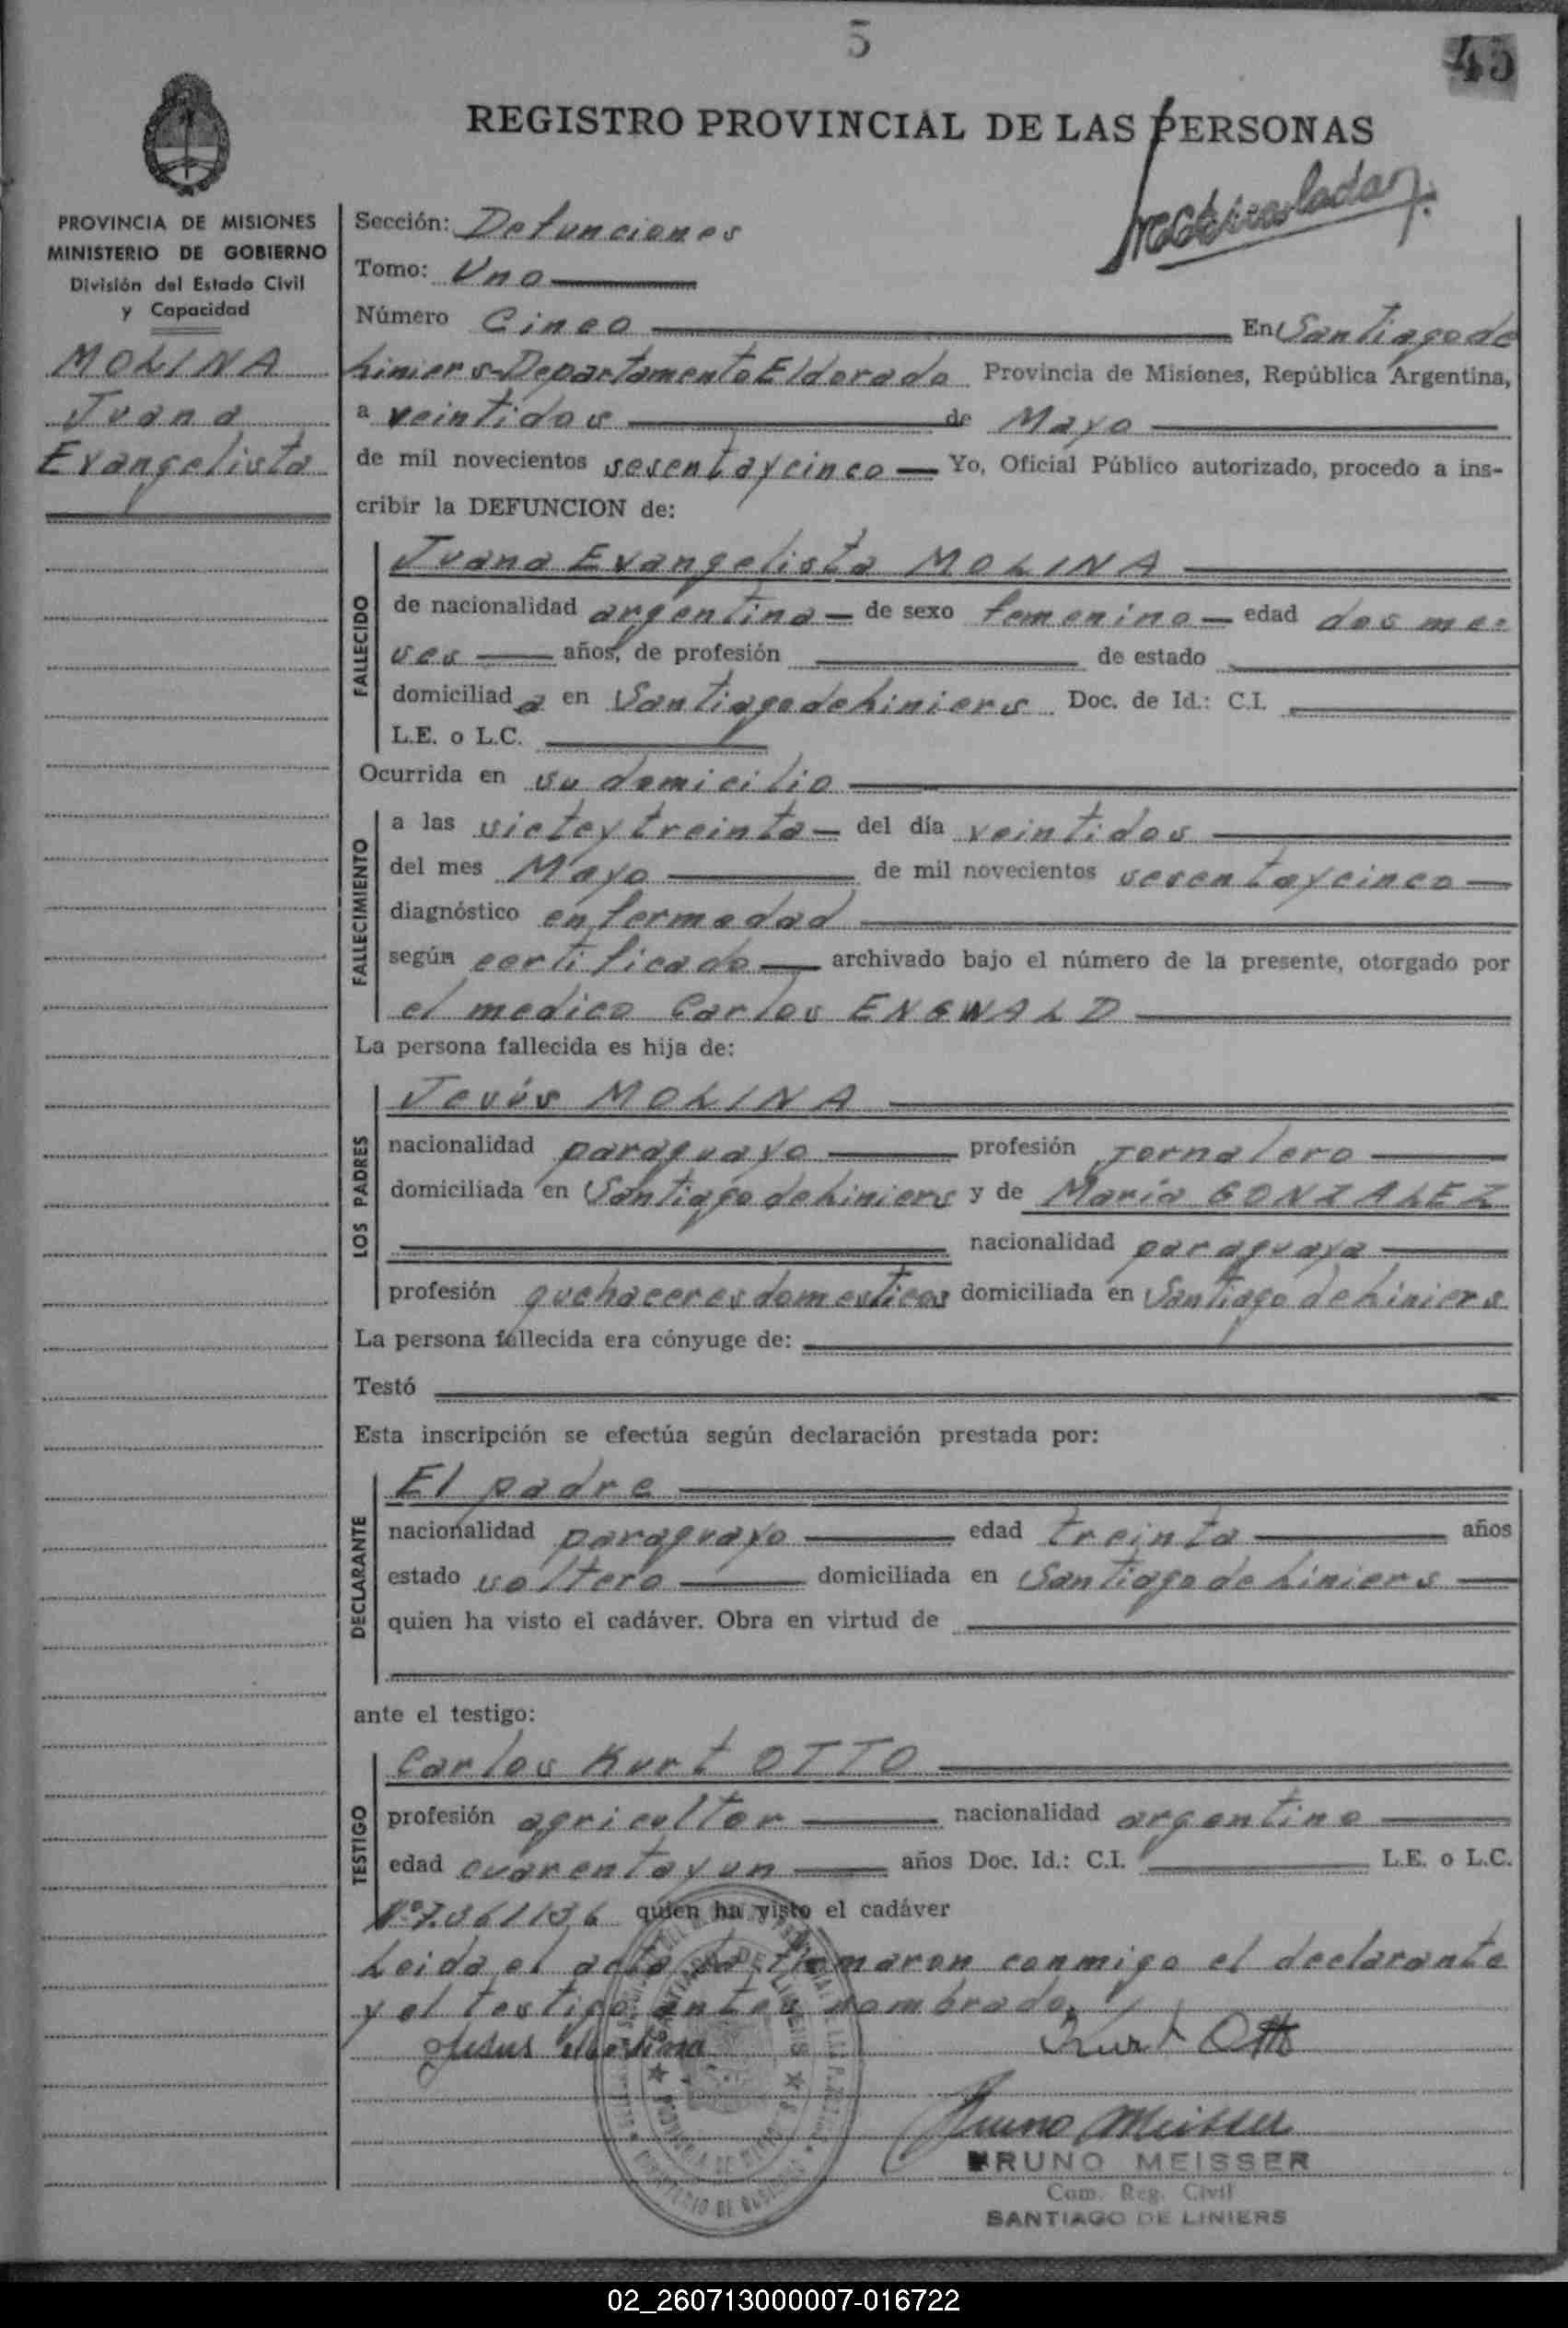 5
45
REGISTRO PROVINCIAL DE LAS PERSONAS
PROVINCIA DE MISIONES
MINISTERIO DE GOBIERNO
División del Estado Civil
y Capacidad
MOLINA
Juana
Evangelista
Sección: Defunciones
Tomo: Uno
Número Cinco En Santiago de
Liniers-Departamento Eldorado Provincia de Misiones, República Argentina,
a veintidos de Mayo
de mil novecientos sesenta y cinco Yo, Oficial Público autorizado, procedo a ins-
cribir la DEFUNCION de:
FALLECIDO
Juana Evangelista MOLINA
de nacionalidad argentina de sexo femenino edad dos me-
ses años, de profesión de estado
domiciliada en Santiago de Liniers Doc. de Id.: C.I.
L.E. o L.C.
Ocurrida en su domicilio
FALLECIMIENTO
a las siete y treinta del día veintidos
del mes Mayo de mil novecientos sesenta y cinco
diagnóstico enfermedad
según certificado archivado bajo el número de la presente, otorgado por
el medico Carlos ENGWALD
La persona fallecida es hija de:
LOS PADRES
Jesús MOLINA
nacionalidad paraguayo profesión jornalero
domiciliada en Santiago de Liniers y de María GONZALEZ
nacionalidad paraguaya
profesión quehaceres domesticos domiciliada en Santiago de Liniers
La persona fallecida era cónyuge de:
Testó
Esta inscripción se efectúa según declaración prestada por:
DECLARANTE
El padre
nacionalidad paraguayo edad treinta años
estado soltero domiciliada en Santiago de Liniers
quien ha visto el cadáver. Obra en virtud de
ante el testigo:
TESTIGO
Carlos Kurt OTTO
profesión agricultor nacionalidad argentino
edad cuarenta y un años Doc. Id.: C.I. L.E. o L.C.
Nº7.061136 quien ha visto el cadáver
Leida el acta la firmaron conmigo el declarante
y el testigo antes nombrado.
Jesus Kurt Otto
Bruno Meisser
BRUNO MEISSER
Com. Reg. Civil
SANTIAGO DE LINIERS
02_260713000007-016722